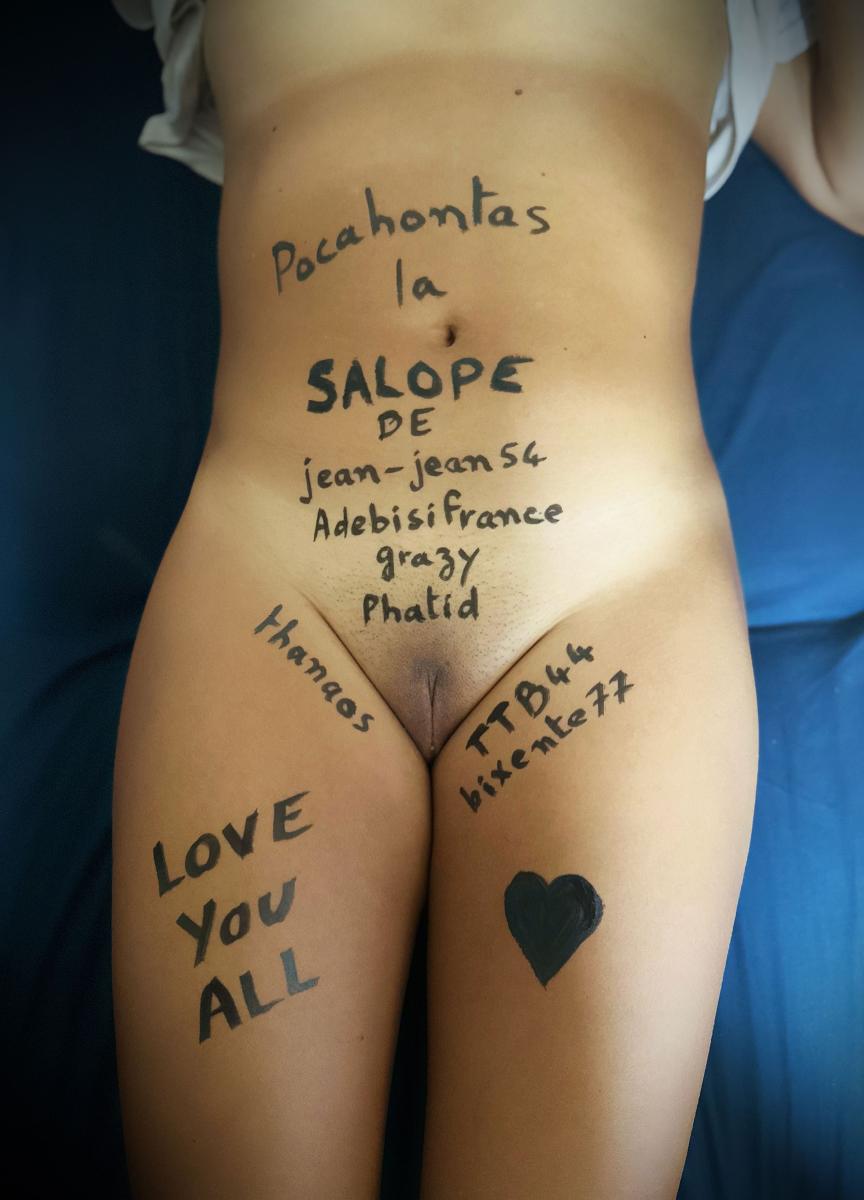 Pocahontas
la
SALOPE
DE
jean-jean54
Adebisifrance
grazy
Phatid
thanaos
TTB44
bixente77
LOVE
YOU
ALL